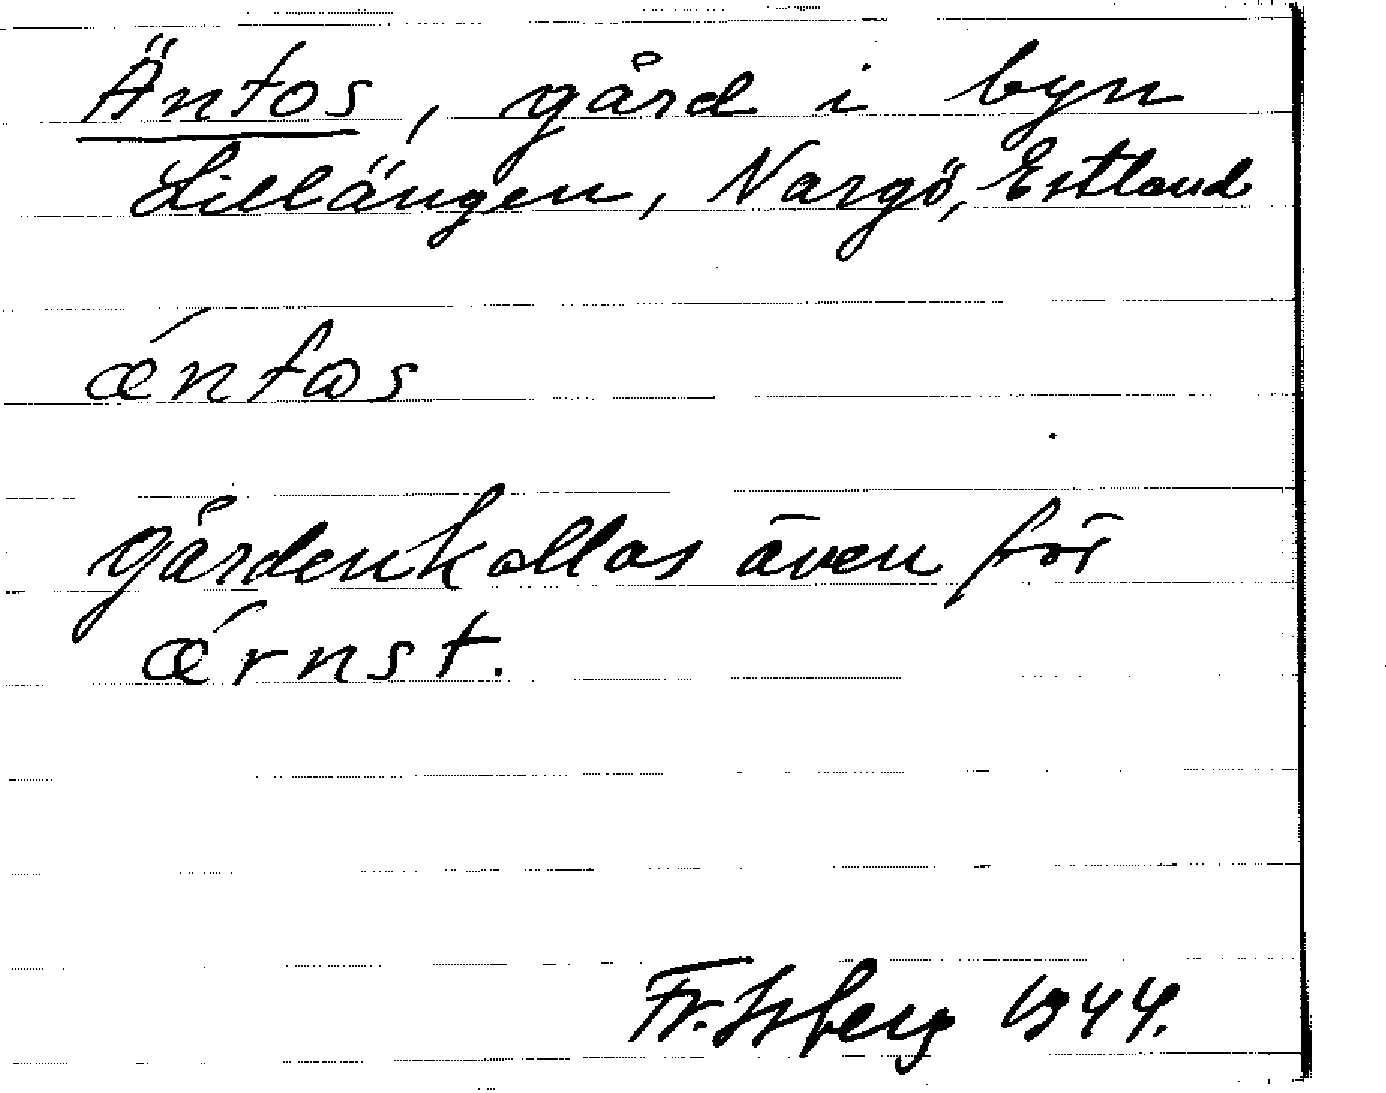 Äntos, gård i byn
Lillängen, Nargö, Estland
ǽntɷs
gården kallas även för
ǽrnst.
Fr. Isberg 1944.